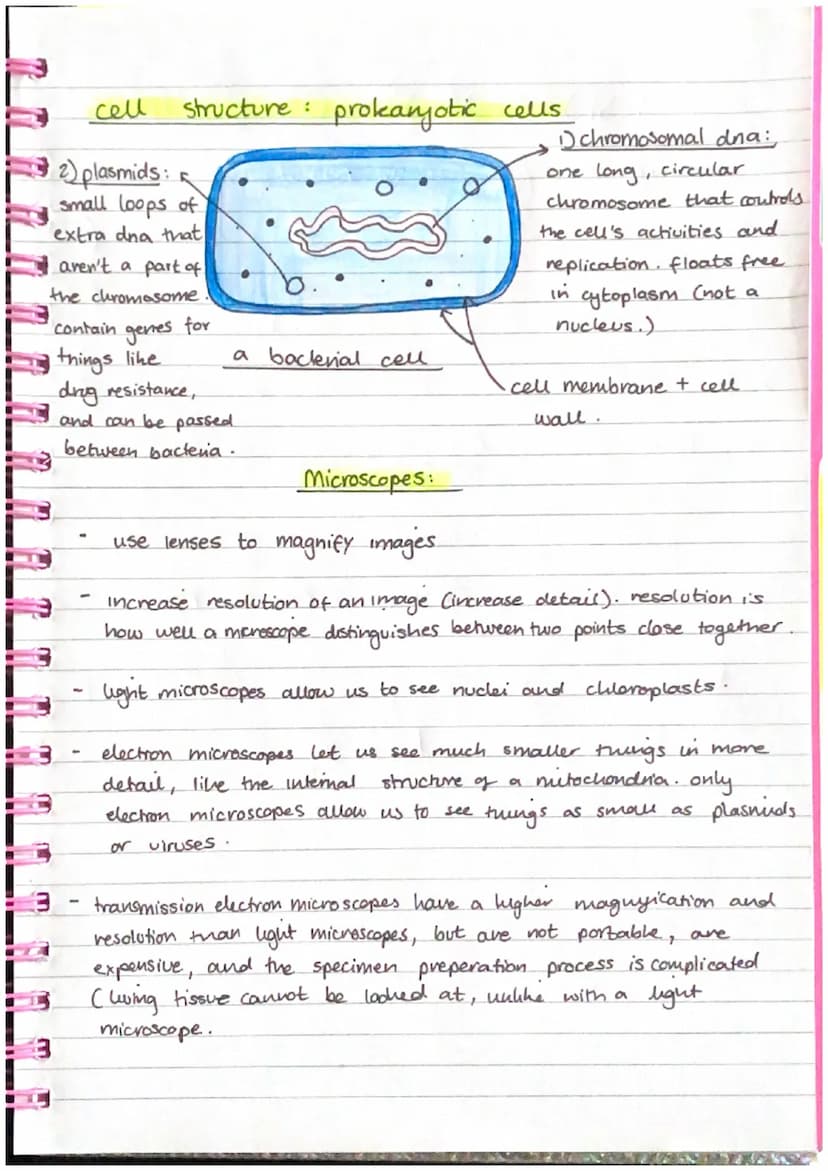 cell structure: prokaryotic cells
2) plasmids:
small loops of
extra dna that
aren't a part of
the chromosome.
contain genes for
things like
drug resistance,
and can be passed
between bacteria.
1) chromosomal dna:
one long, circular
chromosome that controls
the cell's activities and
replication. floats free
in cytoplasm (not a
nucleus.)
a bacterial cell
cell membrane + cell
wall.
Microscopes:
- use lenses to magnify images
- increase resolution of an image (increase detail). resolution is
how well a microscope distinguishes between two points close together.
- light microscopes allow us to see nuclei and chloroplasts.
- electron microscopes let us see much smaller things in more
detail, like the internal structure of a mitochondria. only
electron microscopes allow us to see things as small as plasmids
or viruses.
- transmission electron microscopes have a higher magnification and
resolution than light microscopes, but are not portable, are
expensive, and the specimen preperation process is complicated
(living tissue cannot be looked at, unlike with a light
microscope.